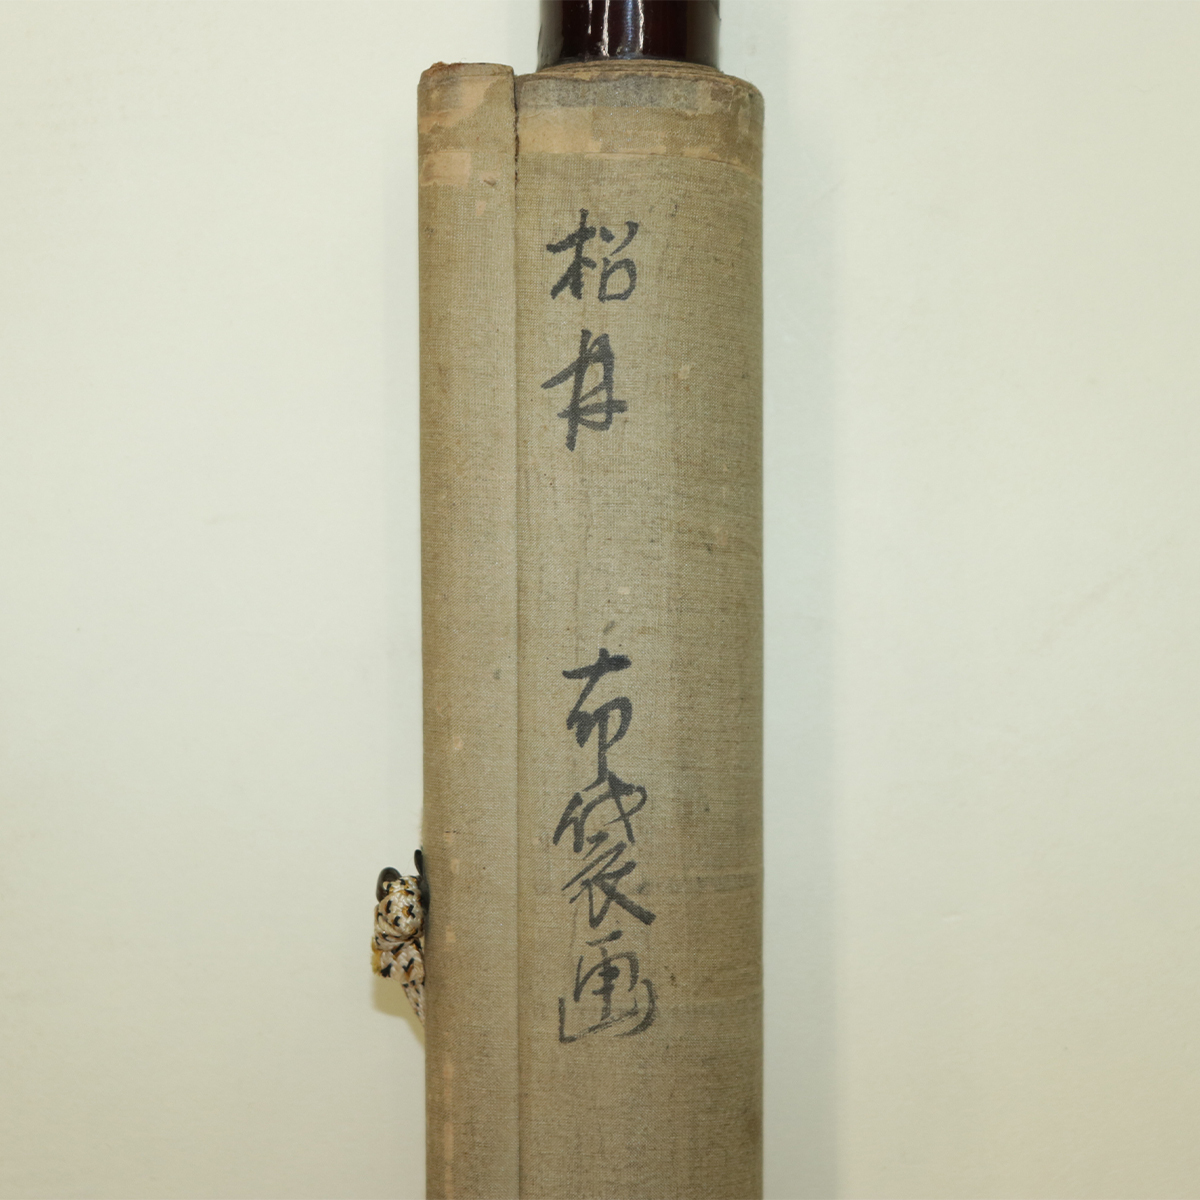 松月 布袋画